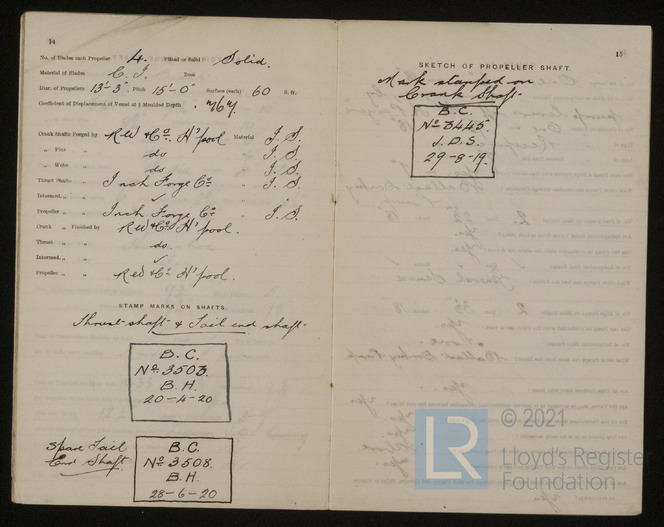 14
No. of Blades each Propeller 4. Fitted or Solid Solid.
Material of Blades C. I. Boss
Diar. of Propellers 13'-3" Pitch 15'-0" Surface (each) 60 S. ft.
Coefficient of Displacement of Vessel at ¾ Moulded Depth .767.
Crank Shafts Forged by R W & Co. H'pool Material I. S.
„ Pins „ do I. S.
„ Webs „ do I. S.
Thrust Shafts „ Inch Forge Co „ I. S.
Intermd. „ „ ✓
Propeller „ „ Inch Forge Co „ I. S.
Crank „ Finished by R W & Co. H'pool.
Thrust „ „ do.
Intermd. „ „ ✓
Propeller „ „ R W & Co. H'pool.
STAMP MARKS ON SHAFTS.
Thrust shaft & Tail end shaft
B. C.
No 3503.
B. H.
20-4-20
Spare Tail
End Shaft
B. C.
No 3508.
B. H.
28-6-20
15
SKETCH OF PROPELLER SHAFT.
Mark stamped on
Crank Shaft
B. C.
No 3445.
J. D. S.
29-8-19.
© 2021
LR
Lloyd's Register
Foundation